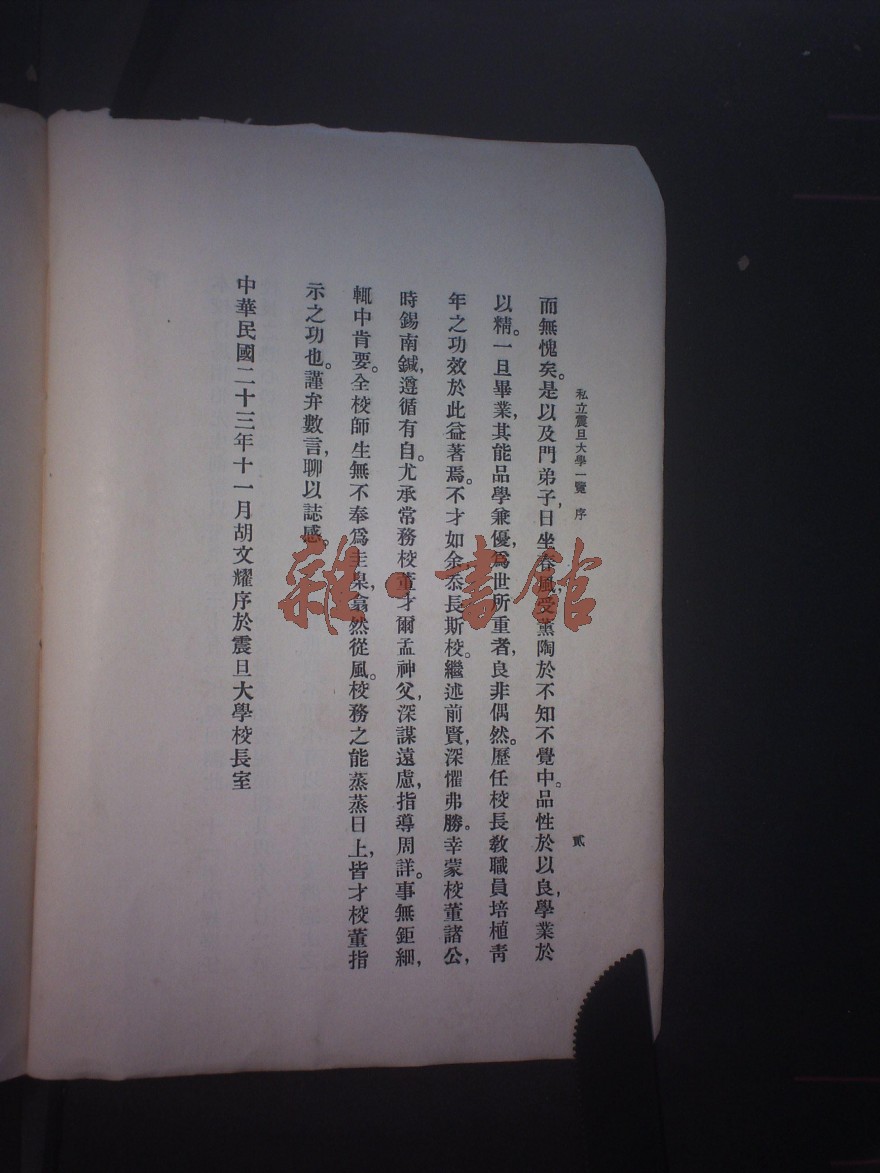 私立震旦大學一覽 序 貳
而無愧矣。是以及門弟子,日坐春風,受薰陶於不知不覺中。品性於以良,學業於
以精。一旦畢業,其能品學兼優,爲世所重者,良非偶然。歷任校長敎職員培植靑
年之功效於此益著焉。不才如余忝長斯校。繼述前賢,深懼弗勝。幸蒙校董諸公,
時錫南鍼,遵循有自。尤承常務校董才爾孟神父,深謀遠慮,指導周詳。事無鉅細,
輒中肯要。全校師生無不奉爲圭臬,翕然從風。校務之能蒸蒸日上,皆才校董指
示之功也。謹弁數言,聊以誌感。
中華民國二十三年十一月胡文耀序於震旦大學校長室
雜·書館